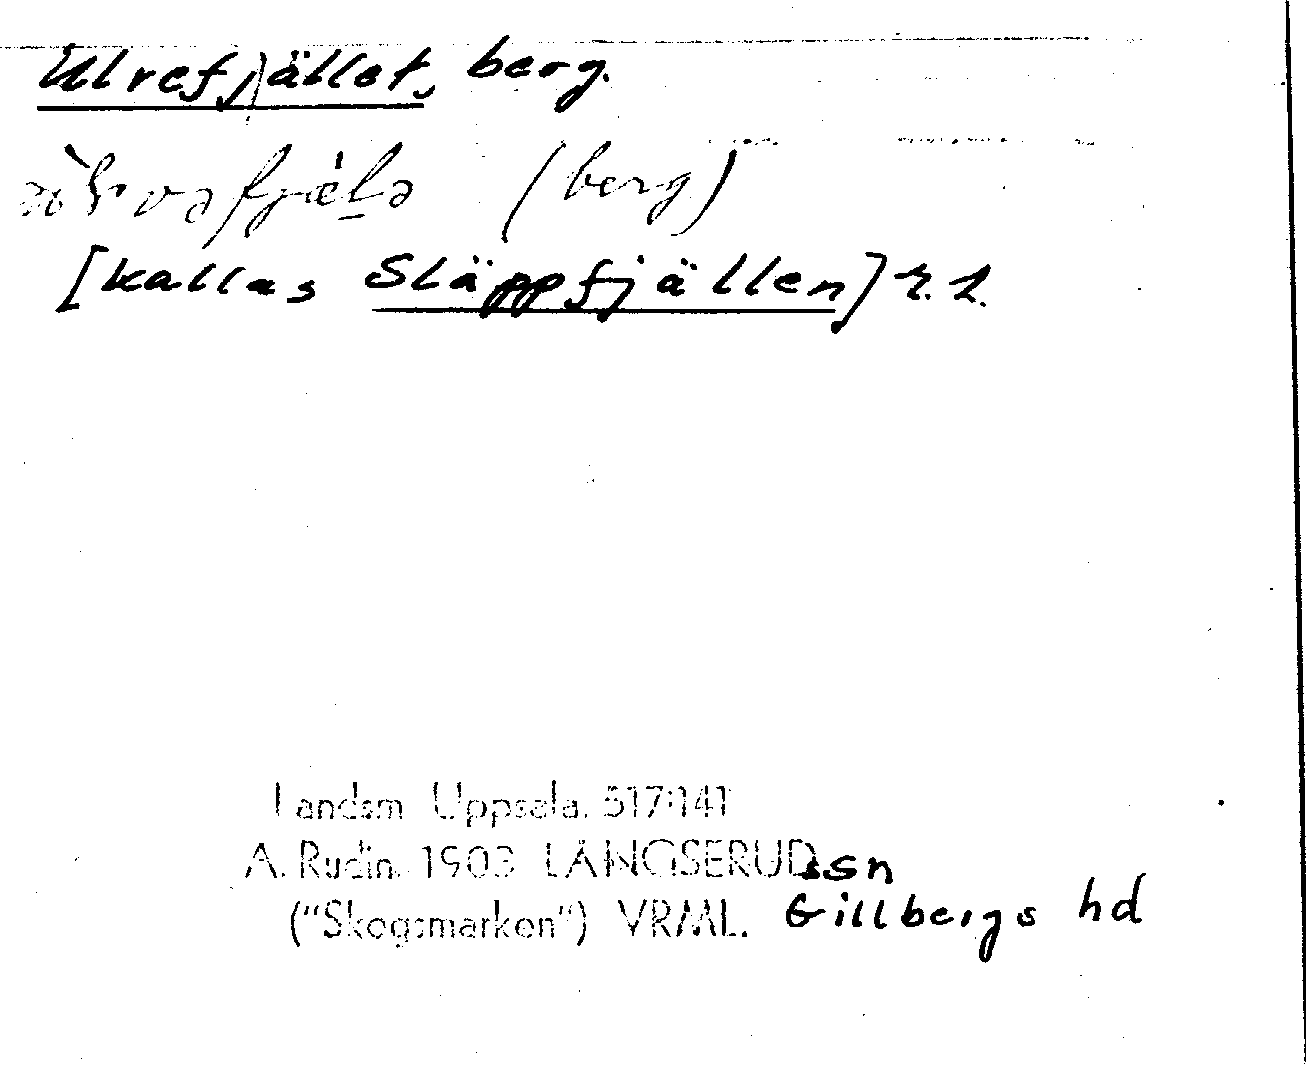 Ulrefjället, berg.
(berg)
[kallas Släppfjällen]
Landsm Uppsala. 517:141
A. Rudin. 1903 LÅNGSERUD ssn
("Skogsmarken") VRML. Gillbergs hd